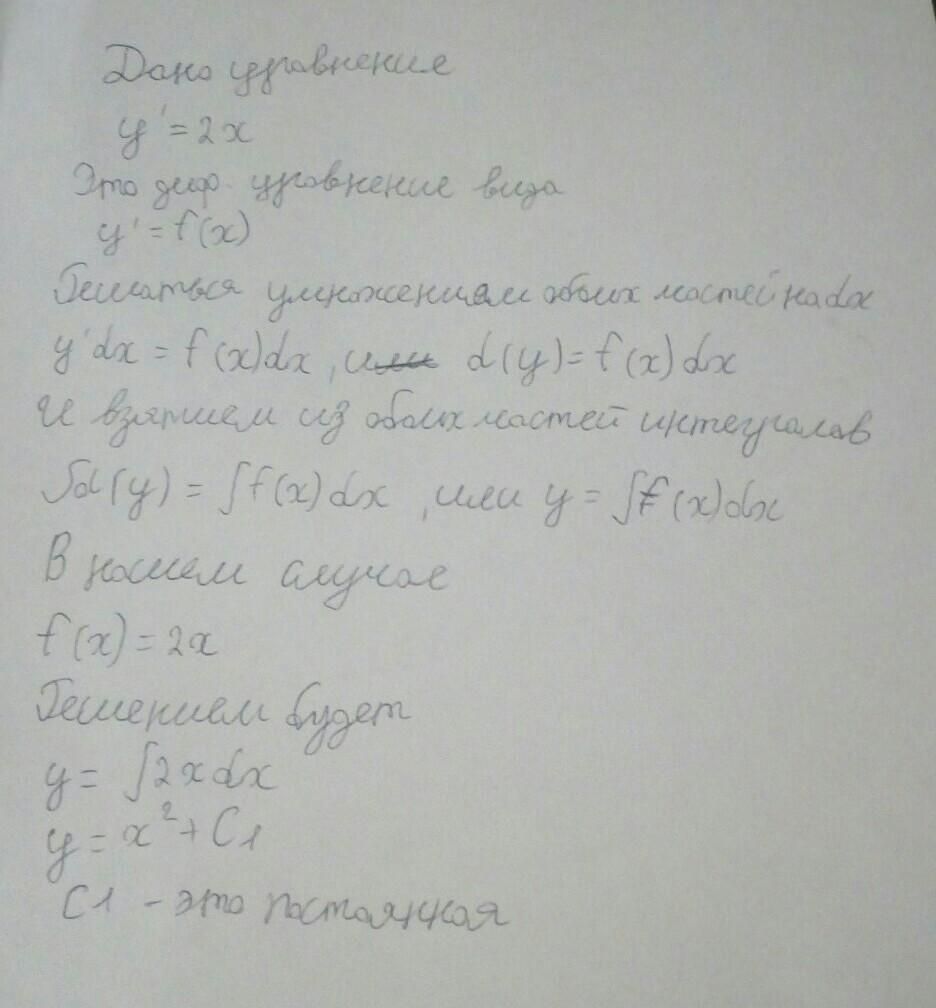 Дано уравнение
y' = 2x
Это диф. уравнение вида
y' = f(x)
Решаться умножением обоих частей на dx
y'dx = f(x)dx, или d(y) = f(x)dx
И взятием из обоих частей интегралов
∫d(y) = ∫f(x)dx, или y = ∫f(x)dx
В нашем случае
f(x) = 2x
Решением будет
y = ∫2xdx
y = x² + C1
C1 - это постоянная